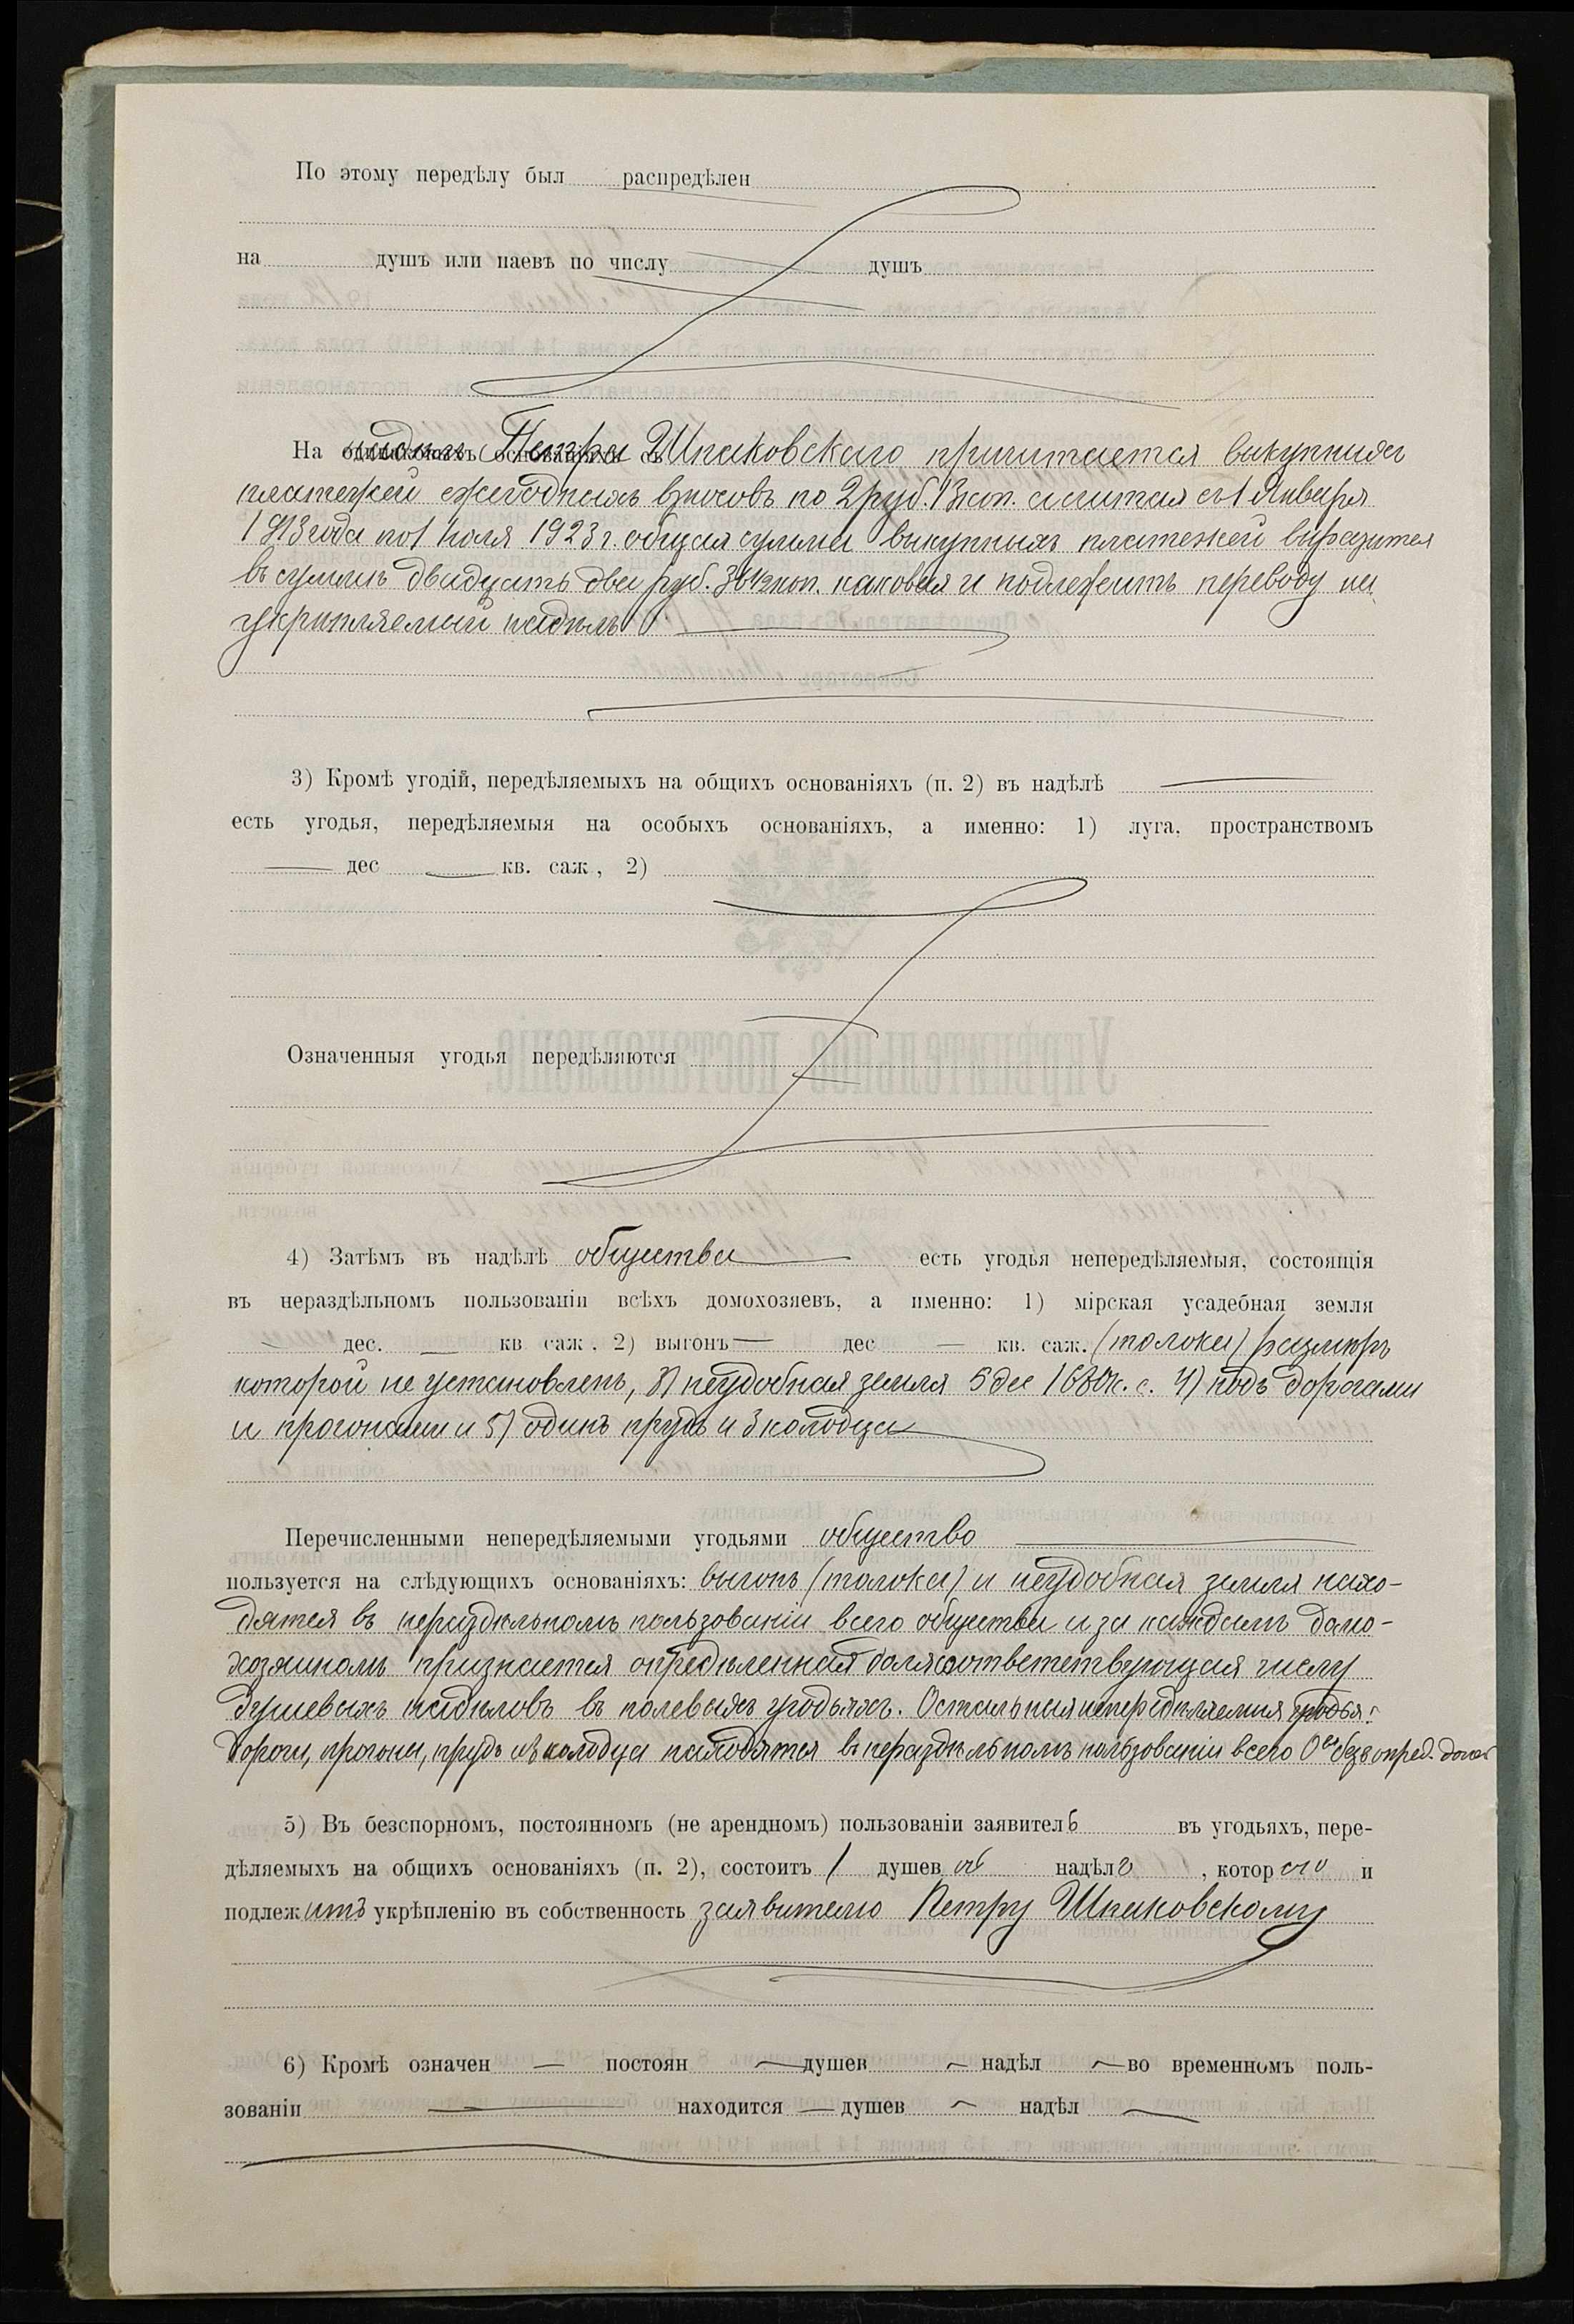 По этому передѣлу был распредѣлен
на душъ или паевъ по числу душъ
На надѣлъ Петра Шпаковскаго причитается выкупныхъ
платежей ежегодныхъ взносовъ по 2 руб. 13 коп. а считая съ 1 Января
1913 года по 1 Іюля 1923 г. общая сумма выкупныхъ платежей выразится
въ суммѣ двадцать два руб. 36½ коп. каковая и подлежитъ переводу на
укрѣпляемый надѣлъ
3) Кромѣ угодій, передѣляемыхъ на общихъ основаніяхъ (п. 2) въ надѣлѣ
есть угодья, передѣляемыя на особыхъ основаніяхъ, а именно: 1) луга, пространствомъ
дес кв. саж, 2)
Означенныя угодья передѣляются
4) Затѣмъ въ надѣлѣ общества есть угодья непередѣляемыя, состоящія
въ нераздѣльномъ пользованіи всѣхъ домохозяевъ, а именно: 1) мірская усадебная земля
— дес. — кв саж. 2) выгонъ — дес — кв. саж. (толока) размѣръ
которой не установленъ, 3) неудобная земля 5 дес 1680 к. с. 4) подъ дорогами
и прогонами и 5) одинъ прудъ и 3 колодца
Перечисленными непередѣляемыми угодьями общество
пользуется на слѣдующихъ основаніяхъ: выгонъ (толока) и неудобная земля нахо-
дятся въ нераздѣльномъ пользованіи всего общества и за каждымъ домо-
хозяиномъ признается опредѣленная доля соотвѣтствующая числу
душевыхъ надѣловъ въ полевыхъ угодьяхъ. Остальныя непередѣляемыя угодья:
дороги, прогоны, прудъ и 3 колодца находятся въ нераздѣльномъ пользованіи всего О-ва безъ опред. долей
5) Въ безспорномъ, постоянномъ (не арендномъ) пользованіи заявителя въ угодьяхъ, пере-
дѣляемыхъ на общихъ основаніяхъ (п. 2), состоитъ 1 душевой надѣлъ, который и
подлежитъ укрѣпленію въ собственность заявителю Петру Шпаковскому
6) Кромѣ означен — постоян — душев — надѣл — во временномъ поль-
зованіи — находится — душев — надѣл —